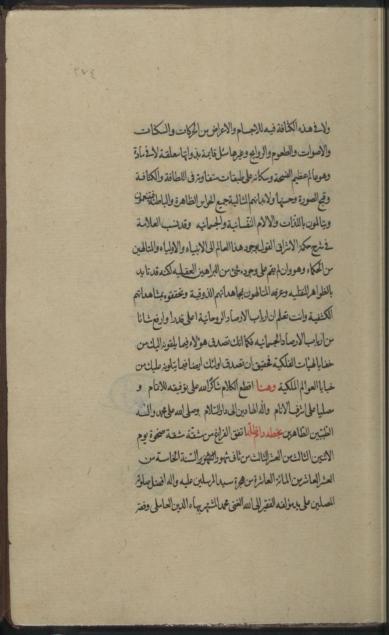 ٣٧٤
ولا في هذه الكثافة فيه للاجسام والاعراض من الحركات والسكنات
والاصوات والطعوم والروايح وغيرها مثل قايمة بذواتها معلقة لا في مادة
وهو عالم عظيم الفسحة وسكانه على طبقات متفاوتة في اللطافة والكثافة
وقبح الصورة وحسنها ولابدانهم المثالية جميع الحواس الظاهرة والباطنة فيتنعمون
ويتالمون باللذات والالام النفسانية والجسمانية وقد نسب العلامة
في شرح حكمة الاشراق القول بوجود هذا العالم الى الانبياء والاولياء والمتالهين
من الحكماء وهو وان لم يقم على وجوده شئ من البراهين العقلية لكنه قد تايد
بالظواهر النقلية وعرفه المتالهون بمجاهداتهم الذوقية وتحققوه بمشاهداتهم
الكشفية وانت تعلم ان ارباب الارصاد الروحانية اعلى قدرا وارفع شانا
من ارباب الارصاد الجسمانية فكما انك تصدق هولاء فيما يلقونه اليك من
خفايا الهيات الفلكية فحقيق ان تصدق اولئك ايضا فيما يتلونه عليك من
خبايا العوالم الملكية وهنا اقطع الكلام شاكرا لله على توفيقه للاتمام و
مصليا على اشرف الانام واله الهادين الى دار السلام وصلى الله على محمد واله
الطيبين الطاهرين اتفق الفراغ من مشقه ضحوة يوم
الاثنين الثالث من العشر الثالث من ثاني شهور السنة الخامسة من
العشر العاشر من المائة العاشرة من هجرة سيد المرسلين عليه واله افضل صلوة
المصلين على يد مؤلفه الفقير الى الله الغنى محمد المشتهر ببهاء الدين العاملى وفقه